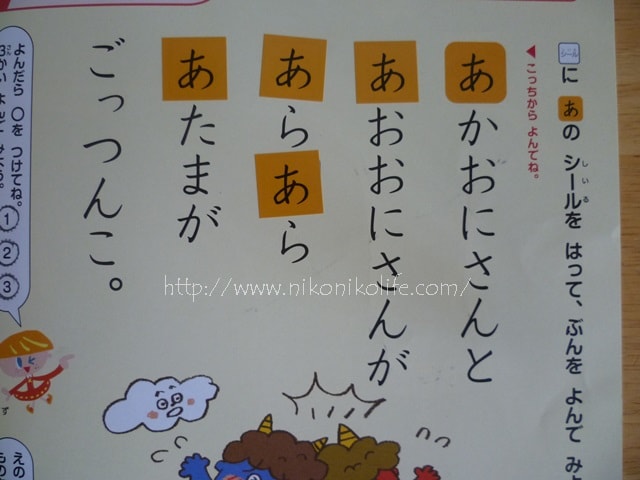 シール に あの シールを はって、ぶんを よんで み
しいる
こっちから よんでね。
あかおにさんと
あおおにさんが
あらあら
あたまが
ごっつんこ。
よんだら ○を つけてね。
3かい よんで みよう。
1
2
3
http://www.nikonikolife.com/
ず
えの